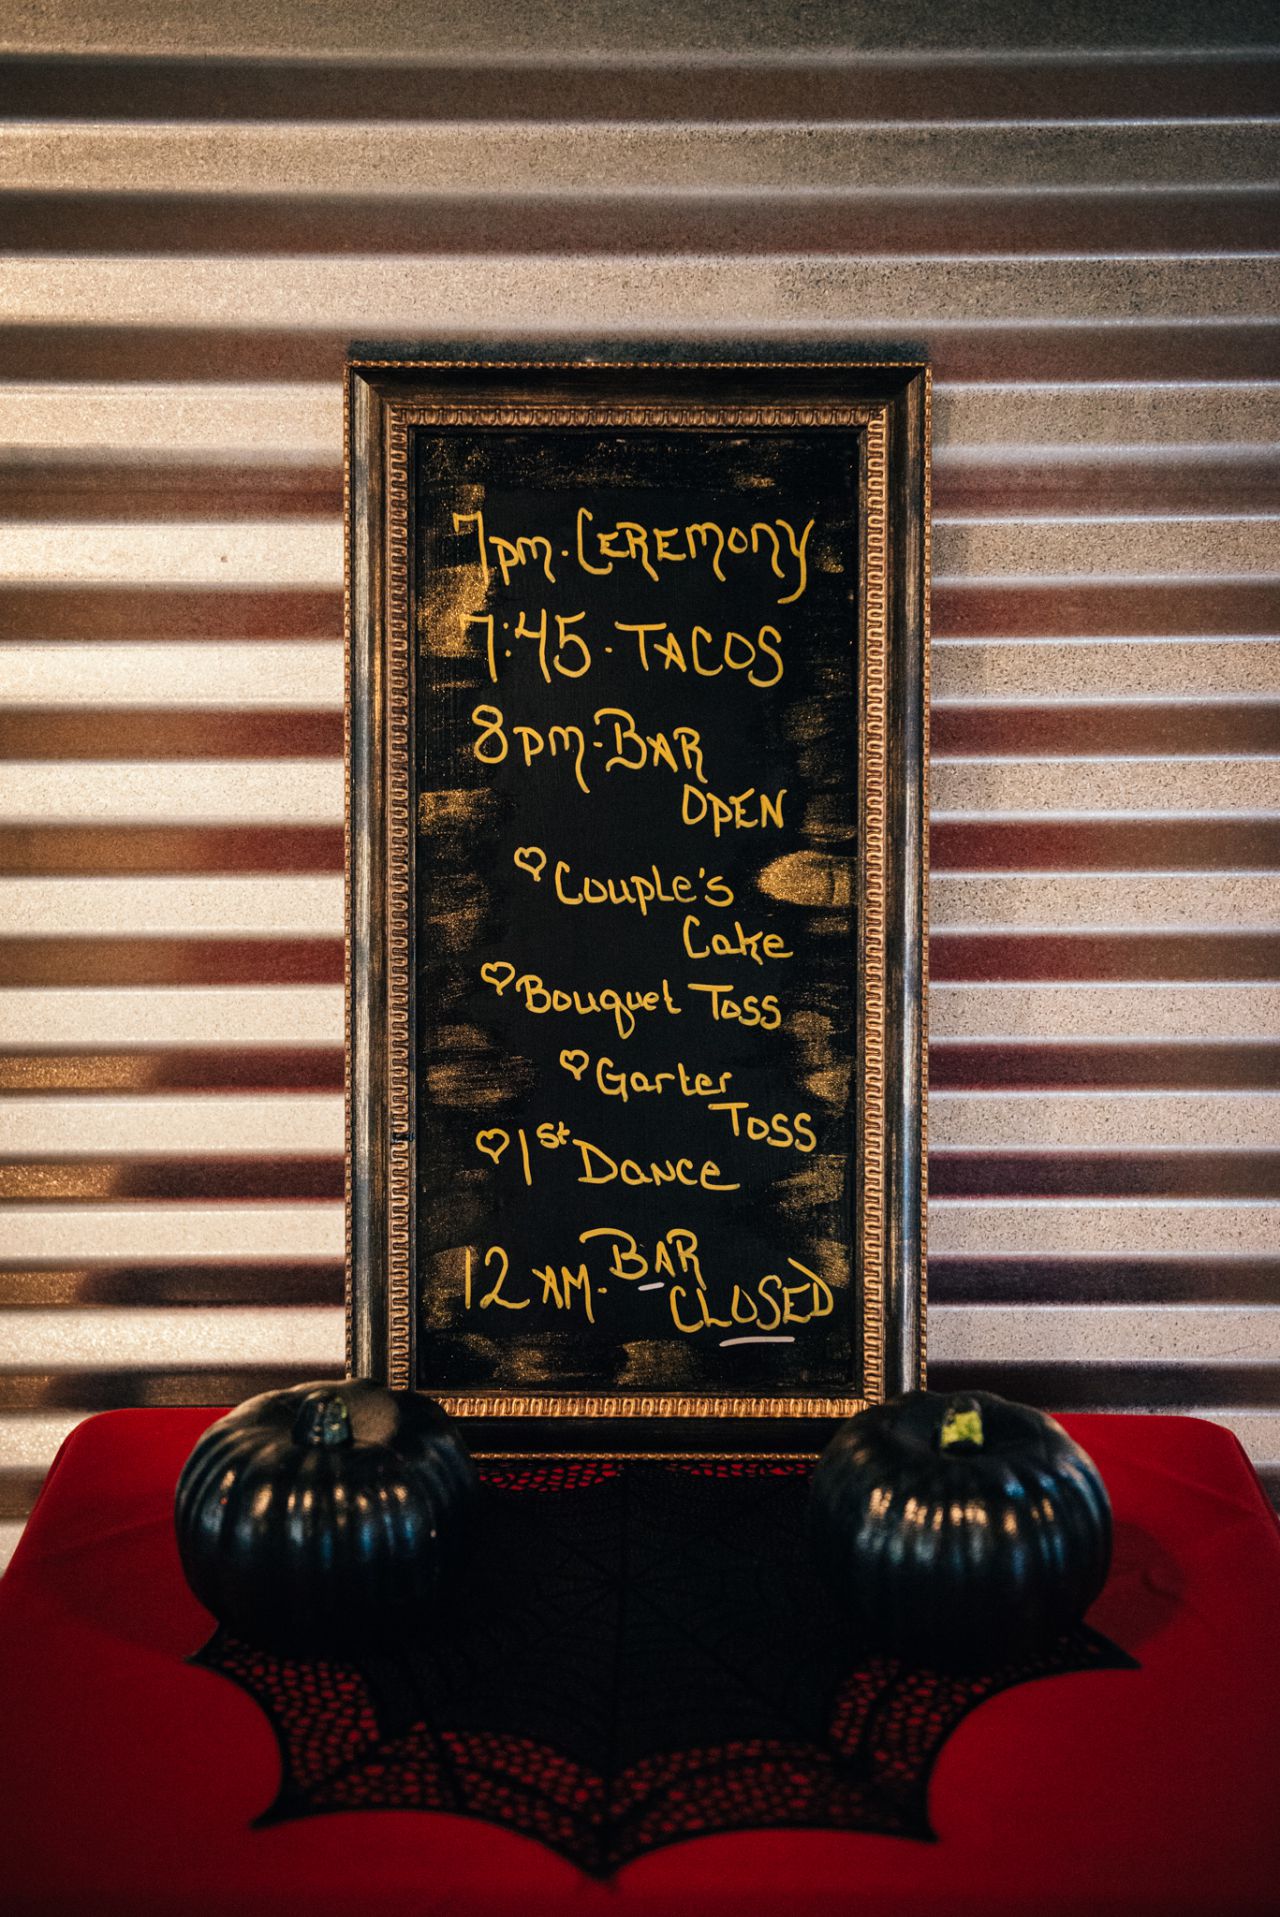 7pm. CEREMONY
7:45. TACOS
8pm. BAR
OPEN
♡ Couple's
Cake
♡ Bouquet Toss
♡ Garter
Toss
♡ 1st Dance
12 AM. BAR
CLOSED